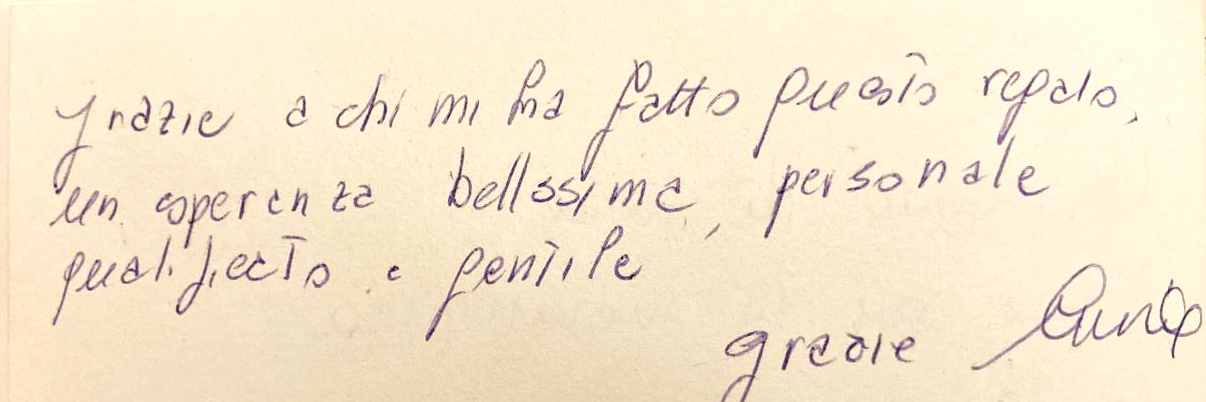 grazie a chi mi ha fatto questo regalo,
un esperenza bellssima, personale
qualificato e gentile
grazie